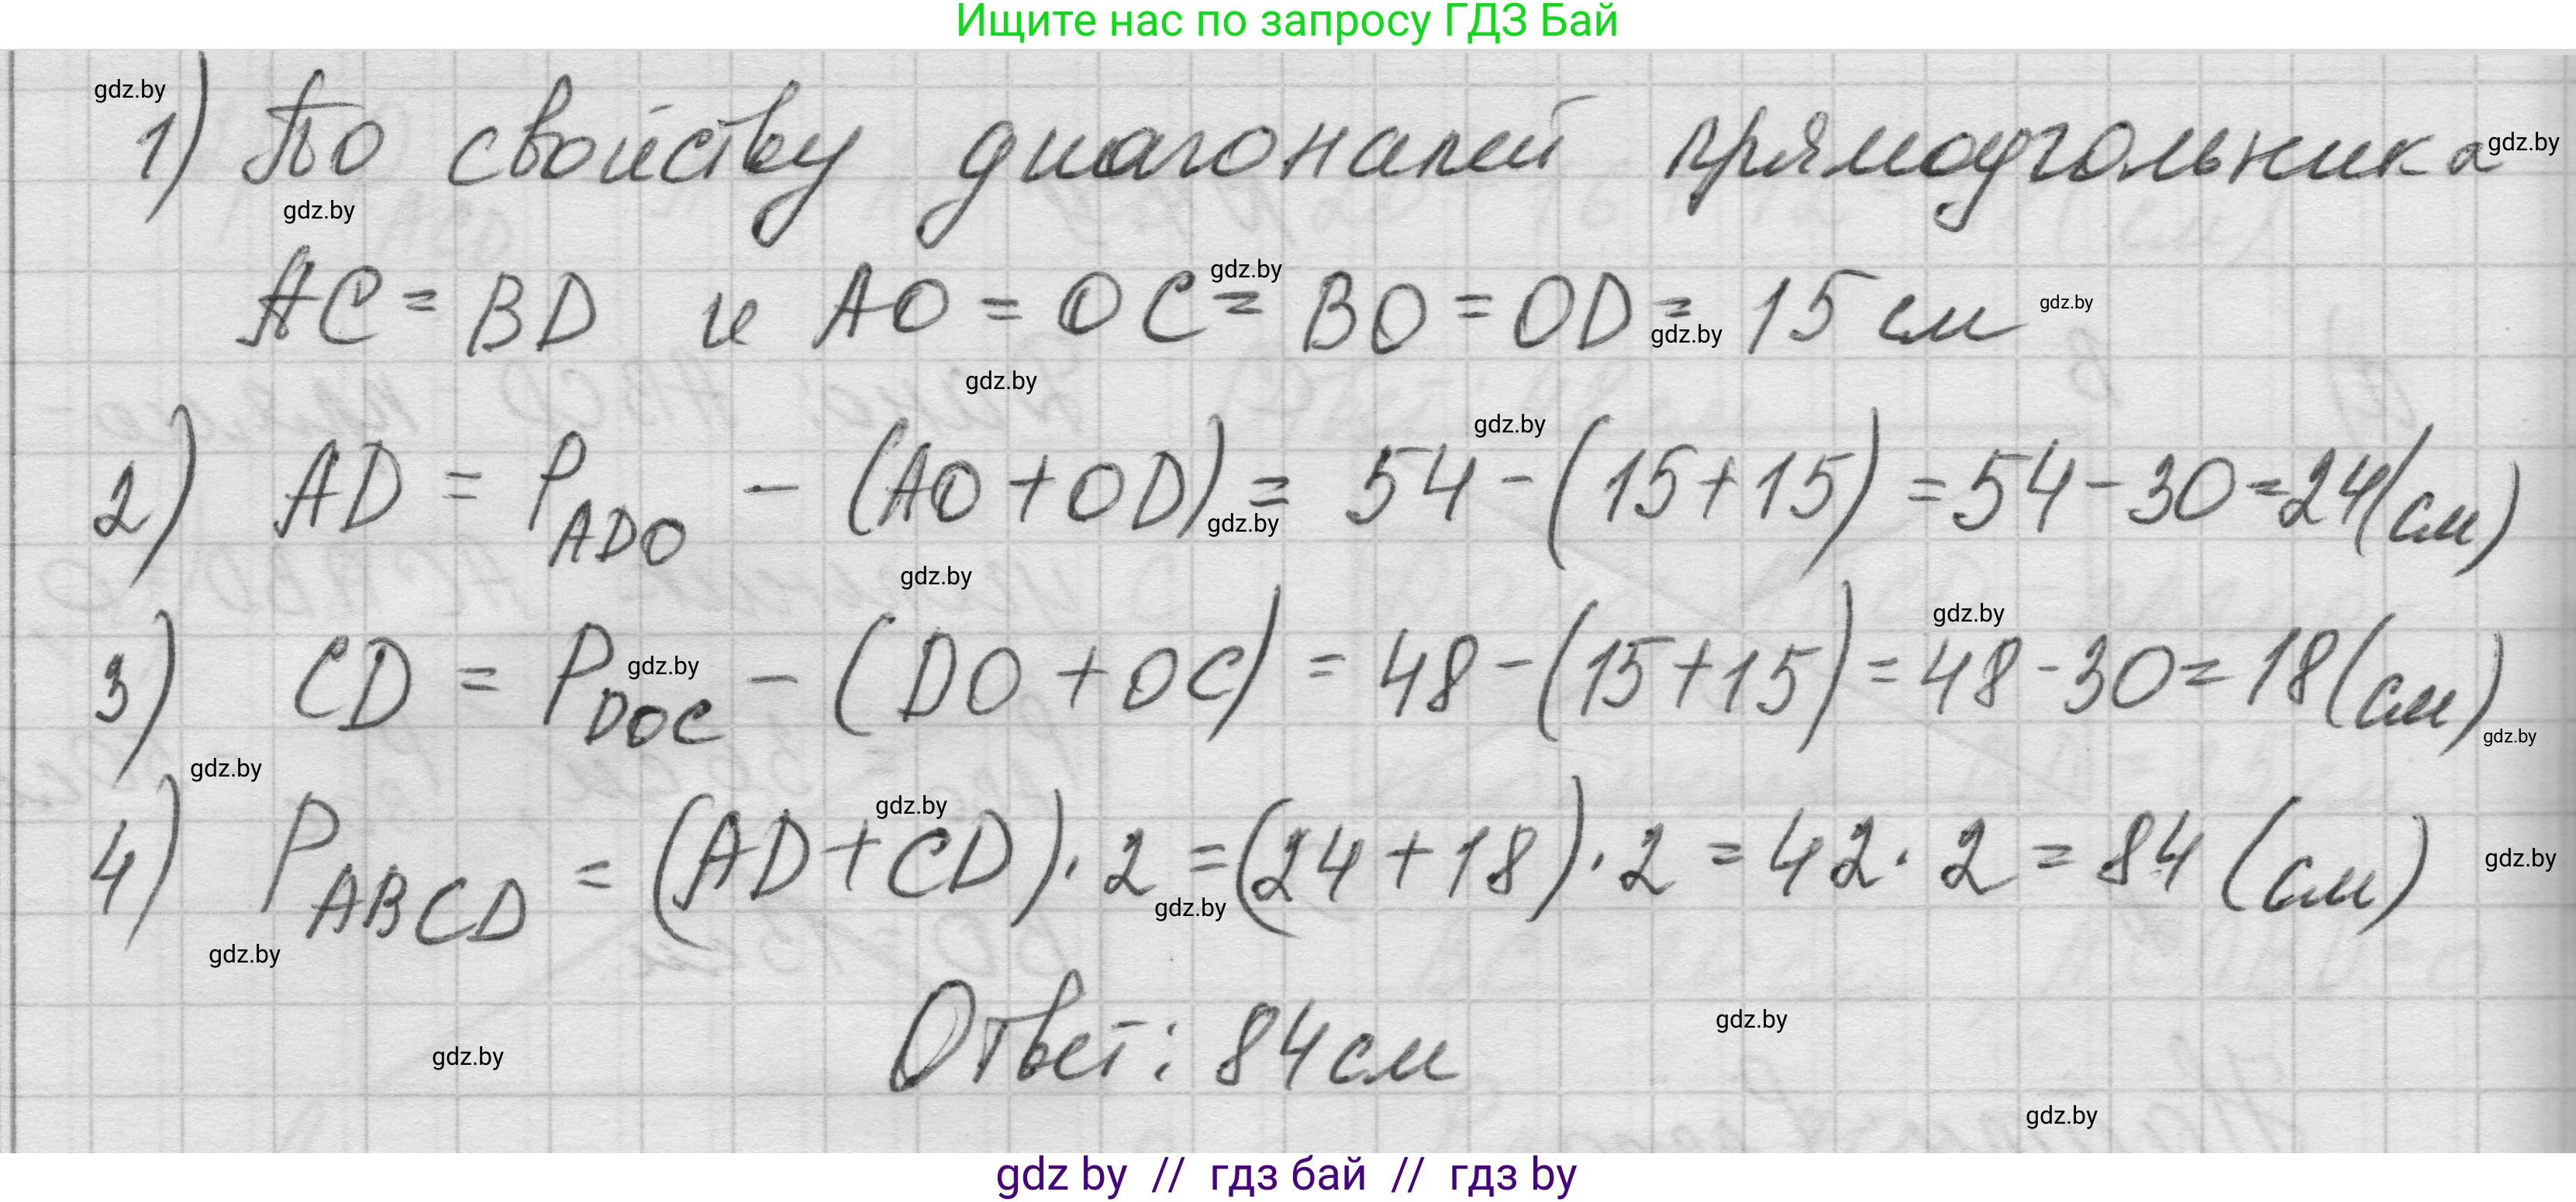 Ищите нас по запросу ГДЗ Бай
gdz.by
1) По свойству диагоналей прямоугольника
gdz.by
gdz.by
gdz.by
AC = BD и AO = OC = BO = OD = 15 см
gdz.by
gdz.by
gdz.by
gdz.by
2) AD = P ADO - (AO + OD) = 54 - (15 + 15) = 54 - 30 = 24 (см)
gdz.by
gdz.by
gdz.by
3) CD = P DOC - (DO + OC) = 48 - (15 + 15) = 48 - 30 = 18 (см)
gdz.by
gdz.by
gdz.by
gdz.by
4) P ABCD = (AD + CD) · 2 = (24 + 18) · 2 = 42 · 2 = 84 (см)
gdz.by
gdz.by
gdz.by
Ответ: 84 см
gdz.by
gdz.by
gdz.by
gdz by // гдз бай // гдз by